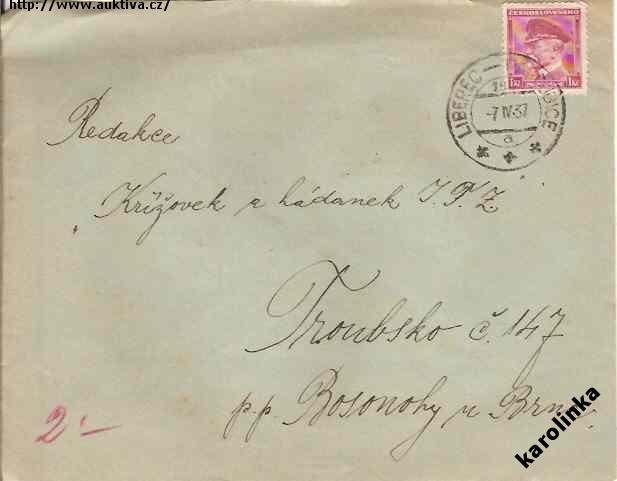 http://www.auktiva.cz/
ČESKOSLOVENSKO
1Kč 1Kč
LIBEREC
-7.IV.37
a
Redakce
Křížovek a hádanek I.P.Z.
Troubsko č. 147
p.p. Bosonohy u Brna.
2.-
karolinka